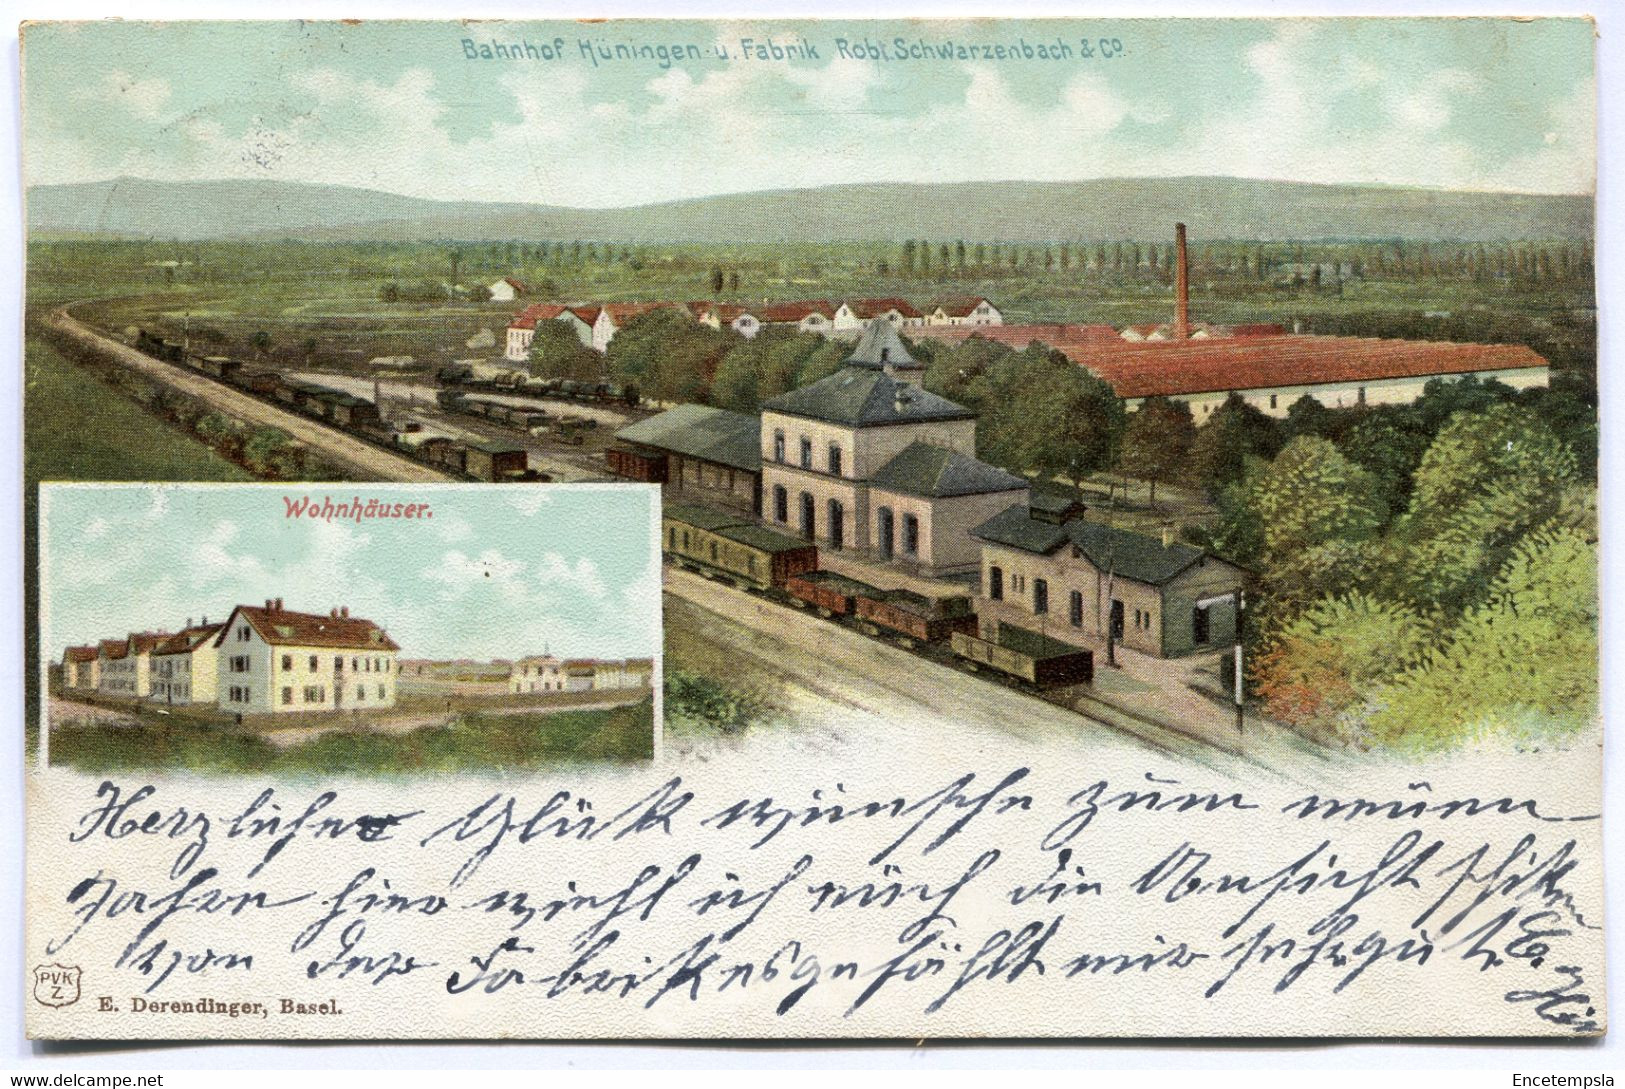 Bahnhof Hüningen u. Fabrik Robt. Schwarzenbach & Co.
Wohnhäuser.
Herzliche Glück wünsche zum neuen
Jahre hier wiehl ich eüch die Ansicht schiken
von der Fabrik es gefählt mir sehr gut
PVK
Z
E. Derendinger, Basel.
Encetempsla